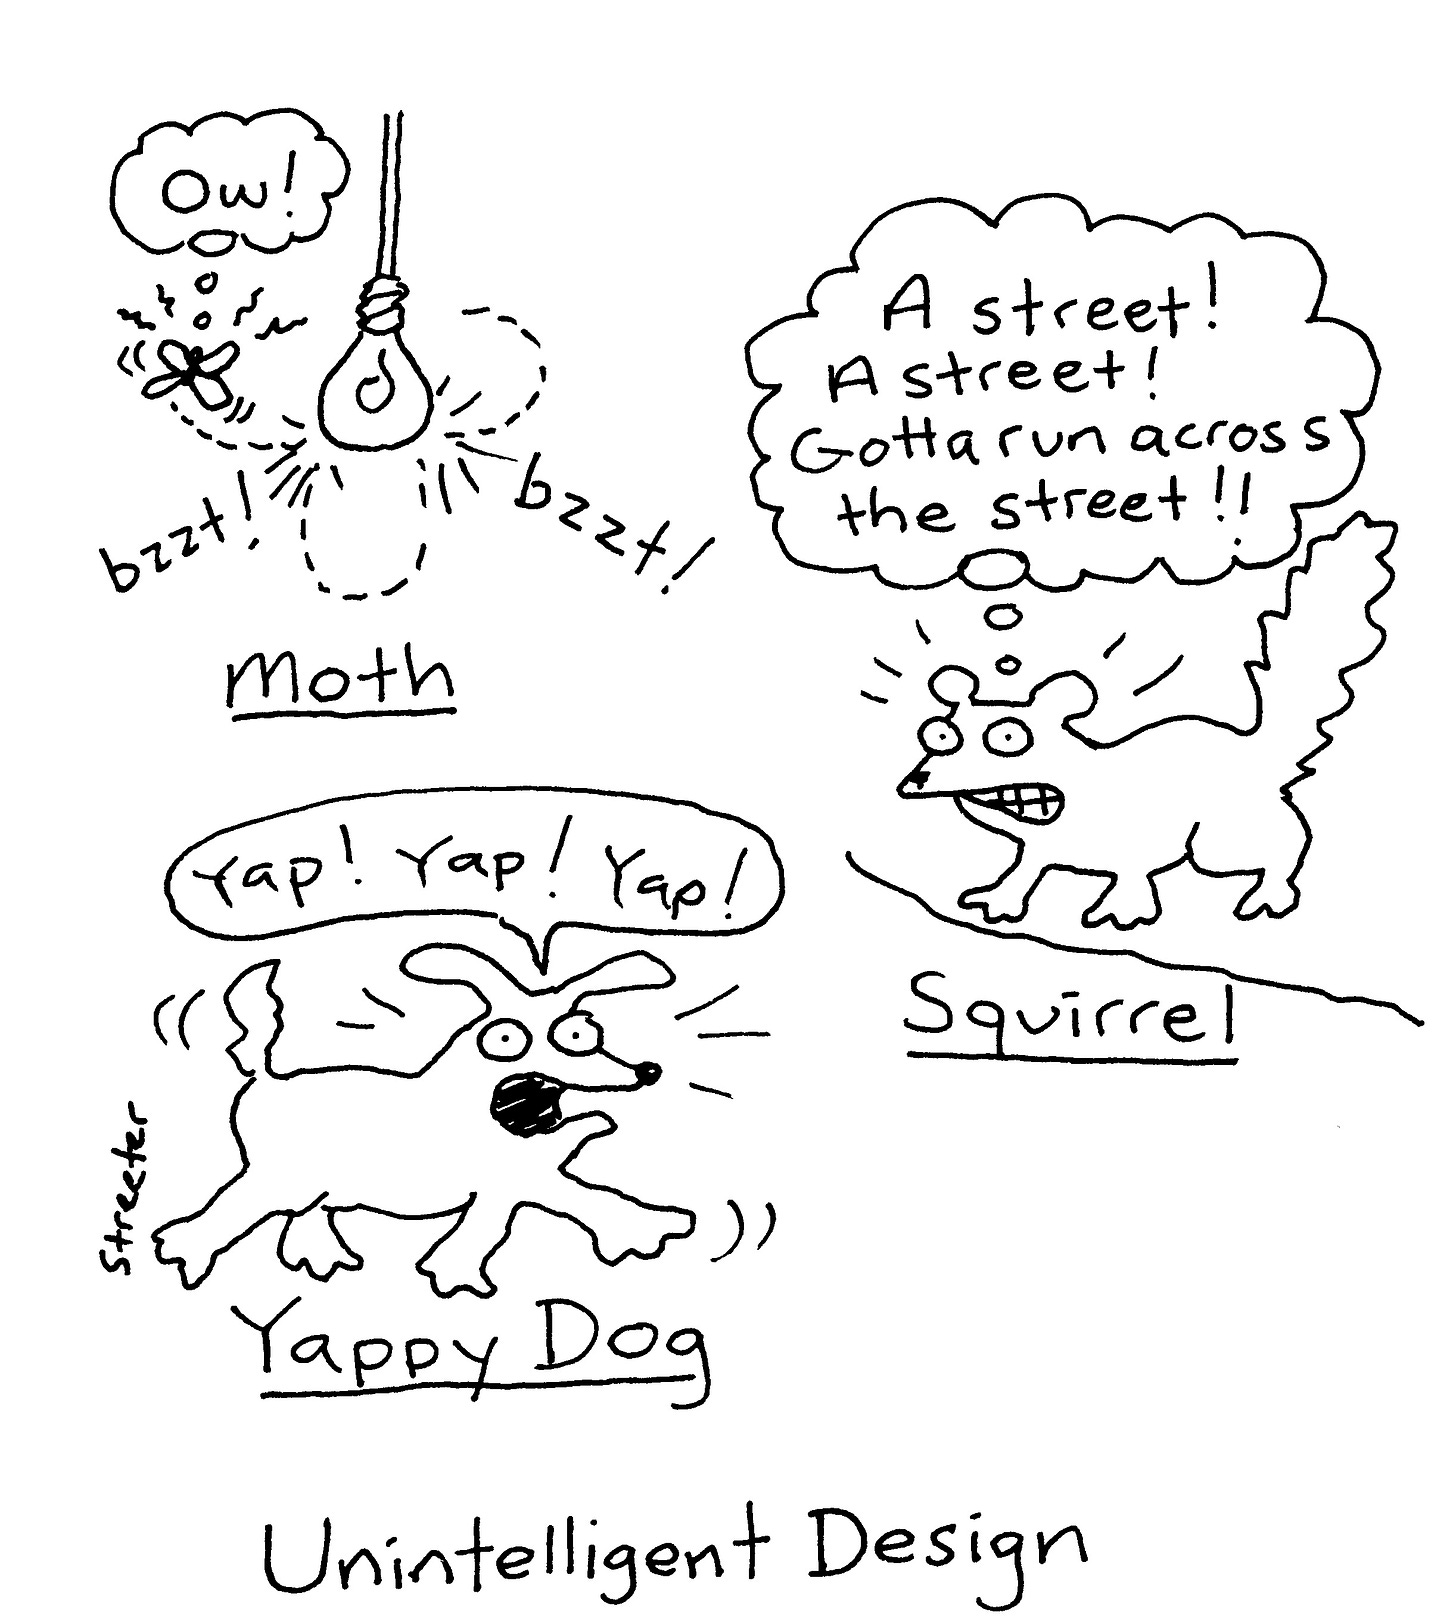 Ow!
bzzt!
bzzt!
Moth
A street!
A street!
Gotta run across
the street!!
Squirrel
Yap! Yap! Yap!
Streeter
Yappy Dog
Unintelligent Design